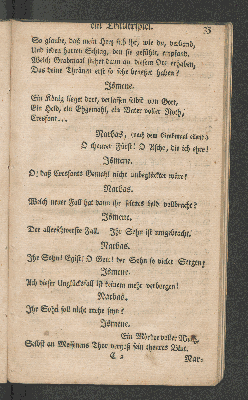 ein Trauerspiel. 33
So glaube, daß mein Herz sich ihr, wie dir, verband,
Und jeden harten Schlag, den sie gefühlt, empfand.
Welch Grabmaal siehet dann an diesem Ort erhaben,
Das deine Thränen erst so sehr benetzet haben?
Ismene.
Ein König lieget dort, verlassen selbst von Gott,
Ein Held, ein Ehgemahl, ein Vater voller Noth,
Cresfont...
Narbas, (nach dem Grabmaal gehend)
O theurer Fürst! O Asche, die ich ehre!
Ismene.
O! daß Cresfonts Gemahl nicht unbeglückter wäre!
Narbas.
Welch neuer Fall hat dann ihr schweres Leid vollbracht?
Ismene.
Der allerschwerste Fall. Ihr Sohn ist umgebracht.
Narbas.
Ihr Sohn! Egist! O Gott! der Sohn so vieler Sorgen!
Ismene.
Ach dieser Unglücksfall ist keinem mehr verborgen!
Narbas.
Ihr Sohn soll nicht mehr seyn?
Ismene.
Ein Mörder voller Wuth,
Selbst an Messenens Thor vergoß sein theures Blut.
C 2 Nar-